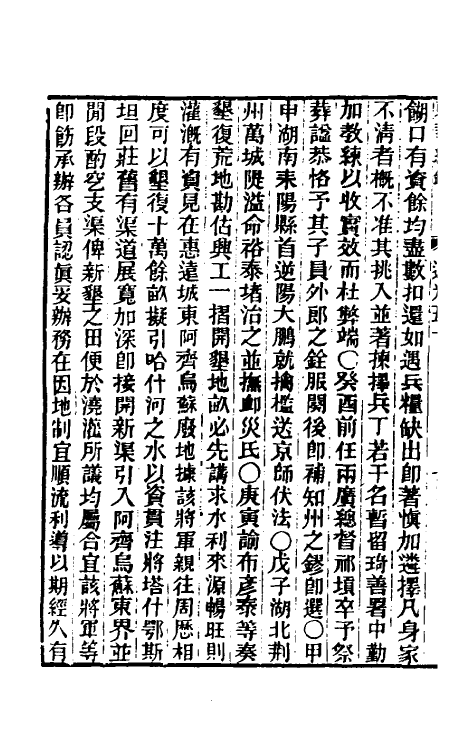 餬口有資餘均盡數扣還如遇兵糧缺出卽著愼加遴擇凡身家
不清者槪不准其挑入並著揀擇兵丁若干名暫留琦善署中勤
加敎練以收實效而杜弊端〇癸酉前任兩廣總督祁𡎴卒予祭
葬諡恭恪予其子員外郞之銓服闋後卽補知州之鏐卽選〇甲
申湖南耒陽縣首逆陽大鵬就擒檻送京師伏法〇戊子湖北荆
州萬城隄溢命裕泰堵治之並撫卹災民〇庚寅諭布彥泰等奏
墾復荒地勘估興工一摺開墾地畝必先講求水利來源暢旺則
灌漑有資見在惠遠城東阿齊烏蘇廢地據該將軍親往周歷相
度可以墾復十萬餘畝擬引哈什河之水以資貫注將塔什鄂斯
坦回莊舊有渠道展寬加深卽接開新渠引入阿齊烏蘇東界並
間段酌挖支渠俾新墾之田便於澆灌所議均屬合宜該將軍等
卽飭承辦各員認眞妥辦務在因地制宜順流利導以期經久有